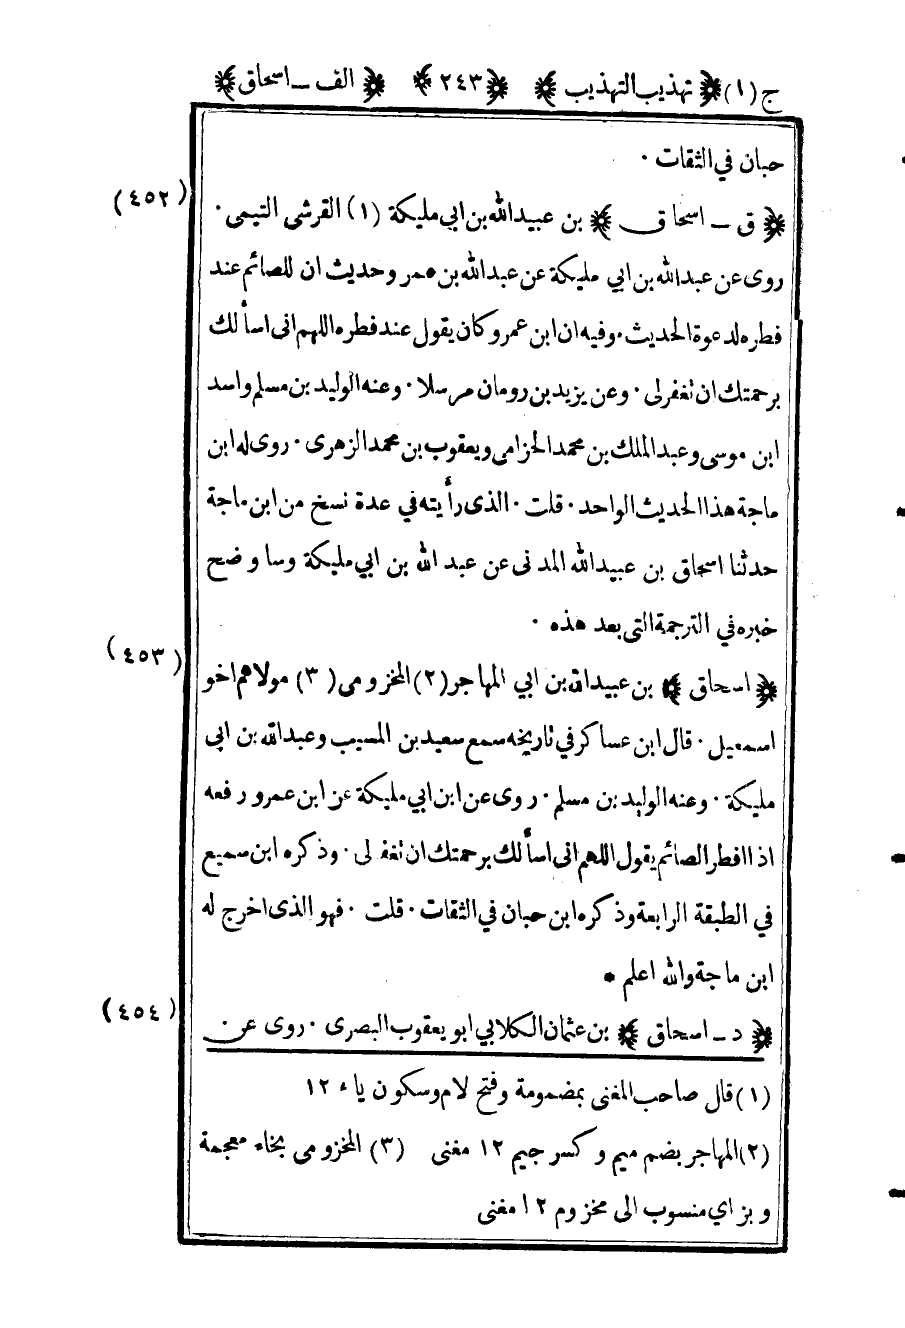 ج (١) ﴿ تهذيب التهذيب ﴾ ﴿ ٢٤٣ ﴾ ﴿ الف ــ اسحاق ﴾
حبان في الثقات ·
(٤٥٢) ﴿ ق ــ اسحاق ﴾ بن عبيدالله بن ابي مليكة (١) القرشي التيمى ·
روى عن عبدالله بن ابي مليكة عن عبدالله بن عمر و حديث ان للصائم عند
فطره لدعوة الحديث · وفيه ان ابن عمر و كان يقول عند فطره اللهم انى اسألك
برحمتك ان تغفر لى · وعن يزيد بن رومان مرسلا · وعنه الوليد بن مسلم واسد
ابن موسى وعبد الملك بن محمد الحزامى ويعقوب بن محمد الزهرى · روى له ابن
ماجة هذا الحديث الواحد · قلت · الذى رأيته في عدة نسخ من ابن ماجة
حدثنا اسحاق بن عبيدالله المدنى عن عبد الله بن ابي مليكة وسا وضح
خبره في الترجمة التى بعد هذه ·
(٤٥٣) ﴿ اسحاق ﴾ بن عبيدالله بن ابي المهاجر (٢) المخزومى (٣) مولاهم اخو
اسمعيل · قال ابن عساكر في تاريخه سمع سعيد بن المسيب وعبدالله بن ابى
مليكة · وعنه الوليد بن مسلم · روى عن ابن ابي مليكة عن ابن عمر و رفعه
اذا افطر الصائم يقول اللهم انى اسألك برحمتك ان تغفر لى · وذكره ابن سميع
في الطبقة الرابعة وذكره ابن حبان في الثقات · قلت · فهو الذى اخرج له
ابن ماجة والله اعلم •
(٤٥٤) ﴿ د ــ اسحاق ﴾ بن عثمان الكلابي ابو يعقوب البصرى · روى عن ·
(١) قال صاحب المغنى بمضمومة وفتح لام وسكون ياء ١٢
(٢) المهاجر بضم ميم و كسر جيم ١٢ مغنى (٣) المخزومى بخاء معجمة
و بزاي منسوب الى مخزوم ١٢ مغنى